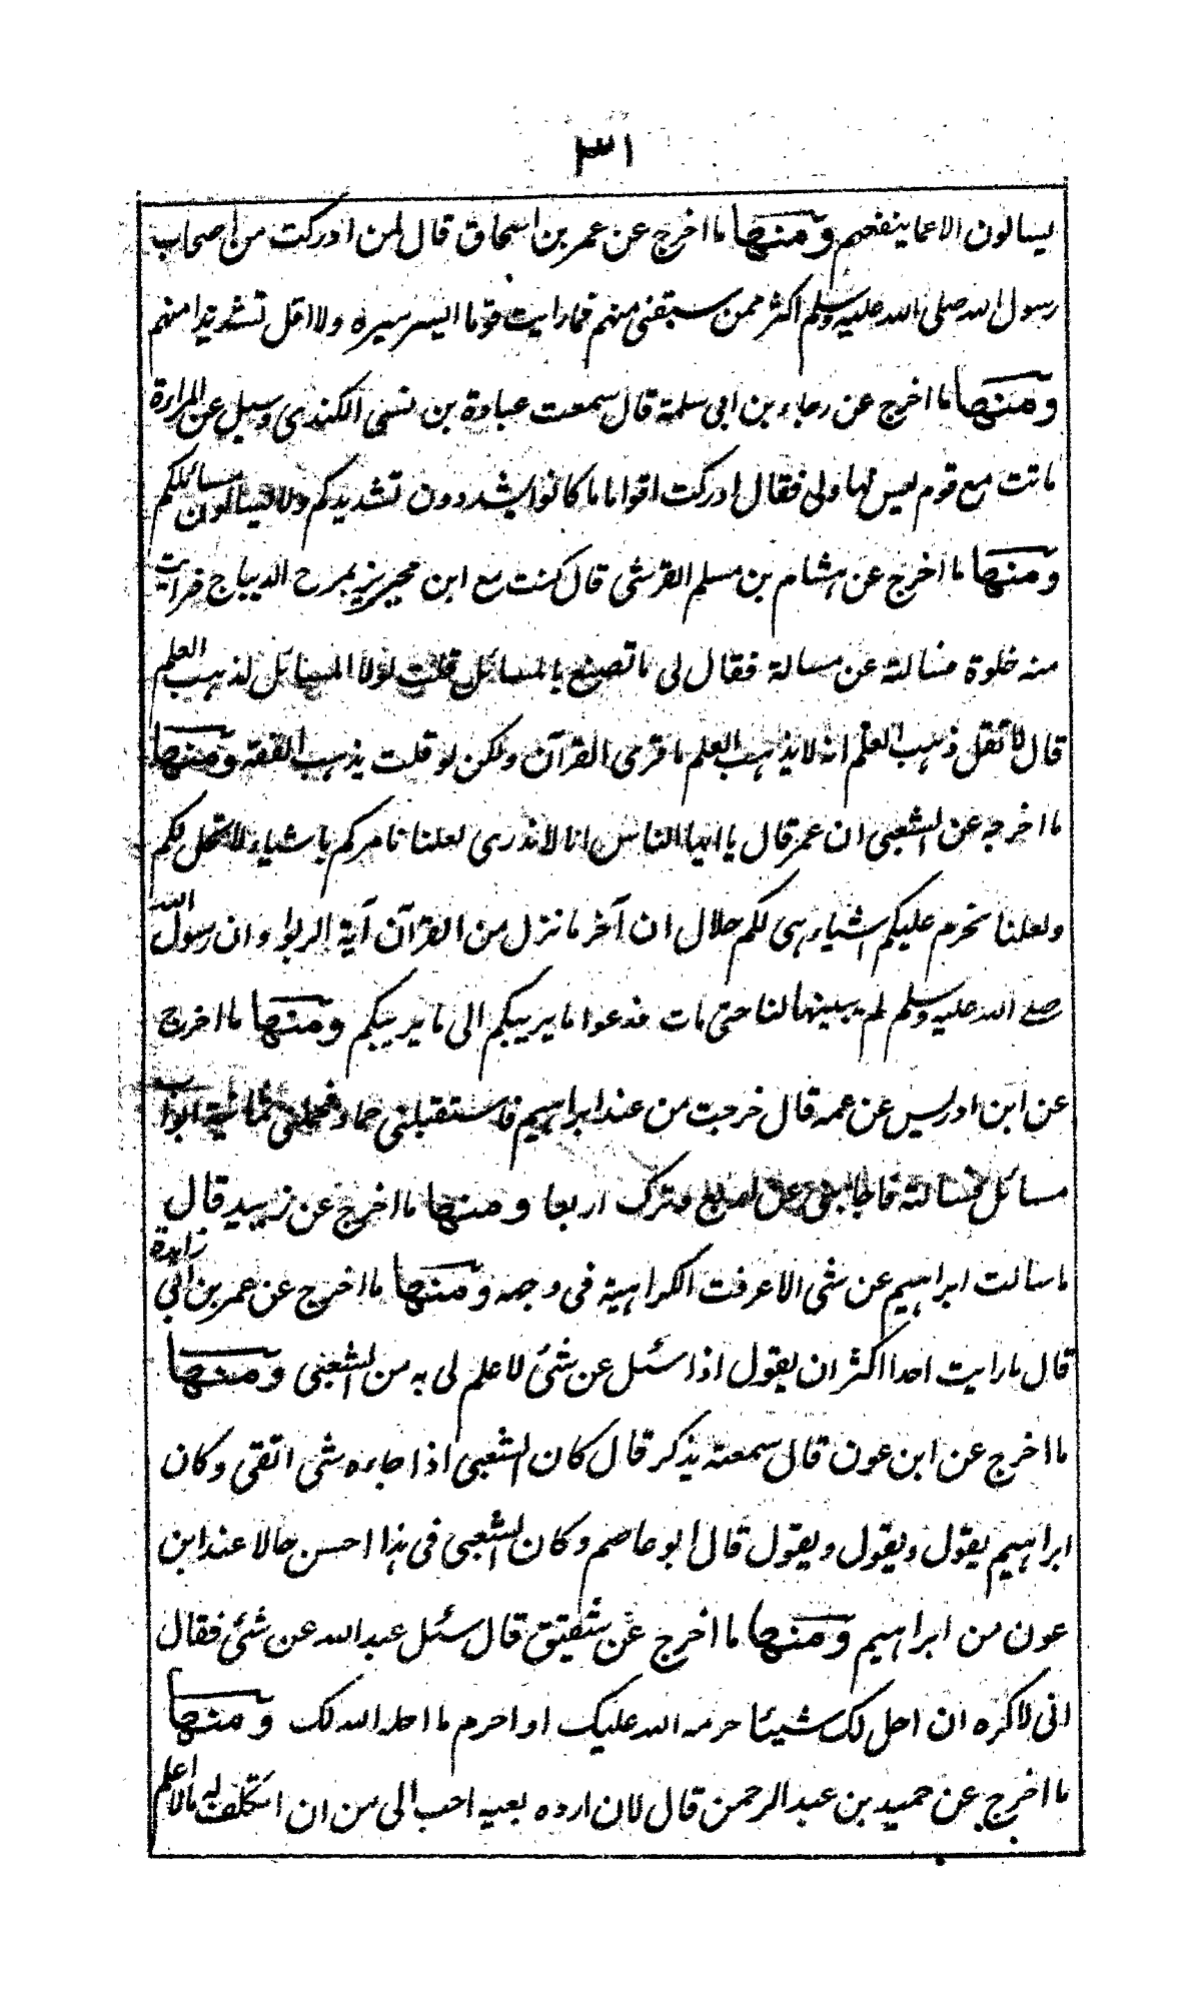 ٣١
يسالون الا عما ينفعهم ومنها ما اخرج عن عمر بن اسحاق قال لمن ادركت من اصحاب
رسول الله صلى الله عليه وسلم اكثر ممن سبقنى منهم فما رايت قوما ايسر سيره ولا اقل تشديدا منهم
ومنها ما اخرج عن رجاء بن ابى سلمة قال سمعت عبادة بن نسى الكندى وسيل عن المراءة
ماتت مع قوم ليس لها ولى فقال ادركت اقواما ما كانوا يشددون تشديدكم ولا يسالون مسائلكم
ومنها ما اخرج عن هشام بن مسلم القرشى قال كنت مع ابن محيريز بمرج الديباج فرايت
منه خلوة فسالته عن مسالة فقال لى ما تصنع بالمسائل قلت لولا المسائل لذهب العلم
قال لا تقل ذهب العلم انه لا يذهب العلم ما قرى القرآن ولكن لو قلت يذهب الفقه ومنها
ما اخرجه عن الشعبى ان عمر قال يا ايها الناس انا لا ندرى لعلنا نامركم باشياء لا تحل لكم
ولعلنا نحرم عليكم اشياء هى لكم حلال ان آخر ما نزل من القرآن آية الربوا وان رسول الله
صلے الله عليه وسلم لم يبينها لنا حتى مات فدعوا ما يريبكم الى ما يريبكم ومنها ما اخرج
عن ابن ادريس عن عمه قال خرجت من عند ابراهيم فاستقبلنى حماد فحملنى ثمانية ابواب
مسائل فسالته فاجابنى عن اربع وترك اربعا ومنها ما اخرج عن زبيد قال
ما سالت ابراهيم عن شى الا عرفت الكراهية فى وجهه ومنها ما اخرج عن عمر بن ابى زايدة
قال ما رايت احدا اكثر ان يقول اذا سئل عن شئ لا علم لى به من الشعبى ومنها
ما اخرج عن ابن عون قال سمعته يذكر قال كان الشعبى اذا جاءه شى اتقى وكان
ابراهيم يقول ويقول ويقول قال ابو عاصم وكان الشعبى فى هذا احسن حالا عند ابن
عون من ابراهيم ومنها ما اخرج عن شقيق قال سئل عبد الله عن شئ فقال
انى لاكره ان احل لك شيئا حرمه الله عليك او احرم ما احله الله لك ومنها
ما اخرج عن حميد بن عبد الرحمن قال لان ارده بعيه احب الى من ان اتكلف له ما لا اعلم